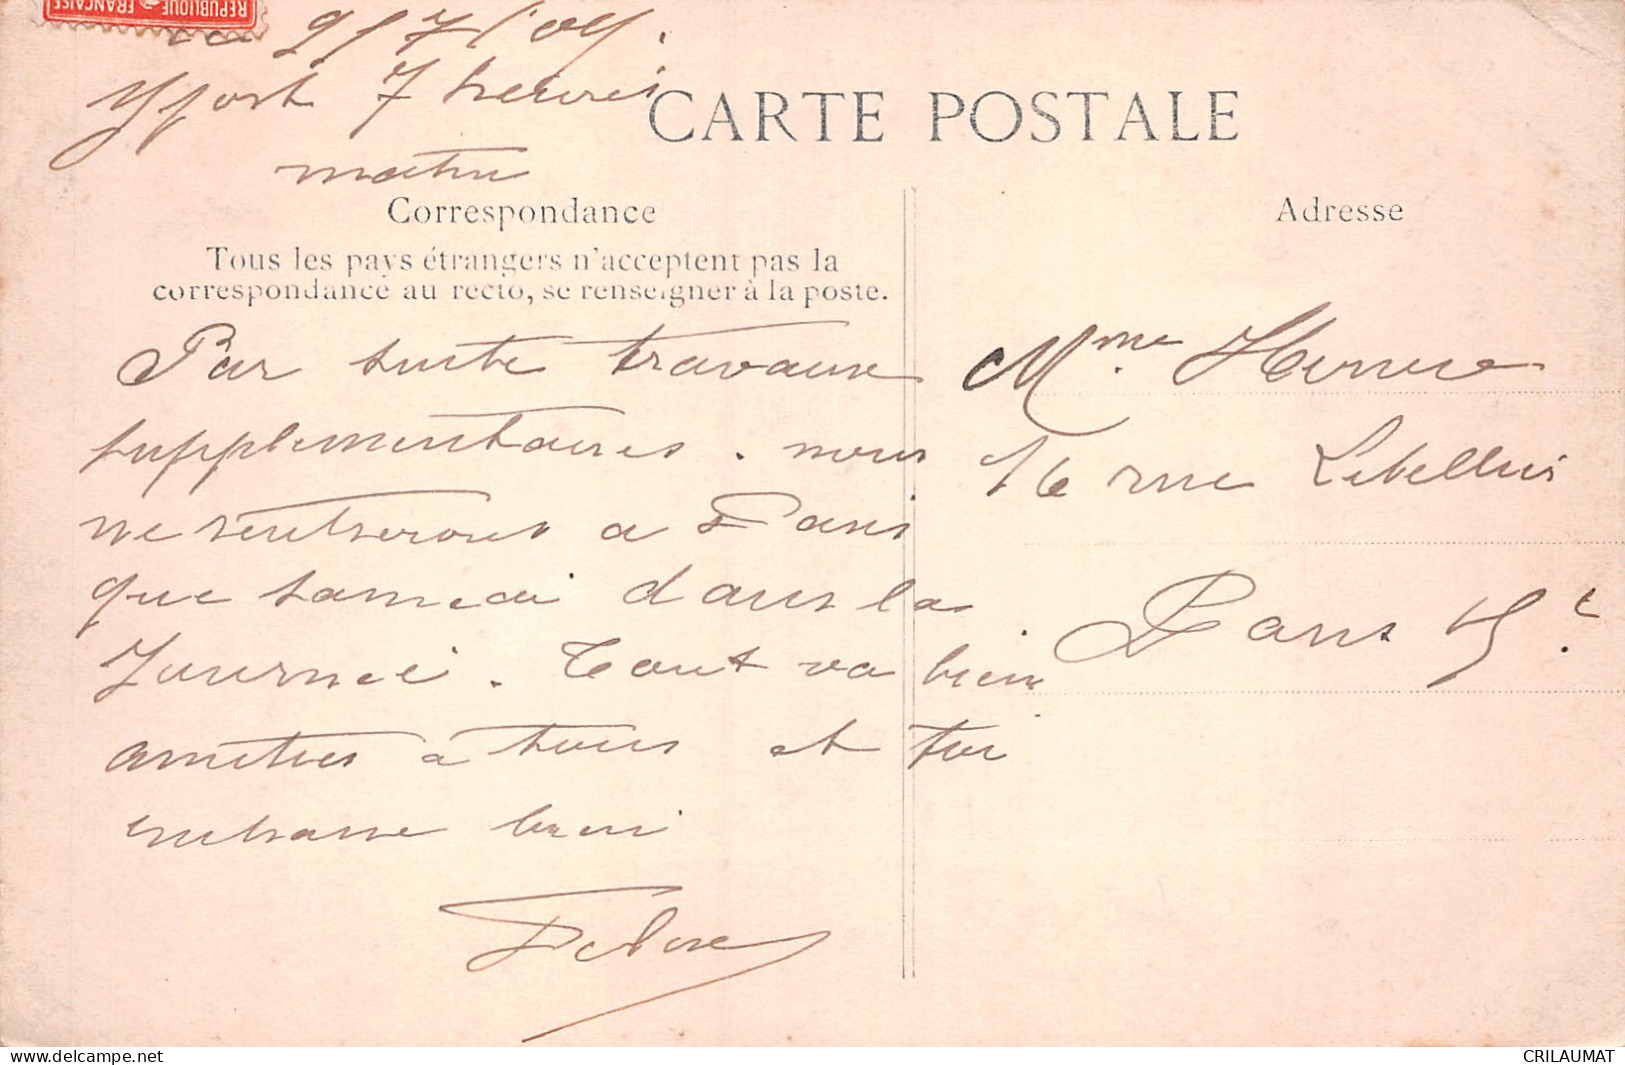 RÉPUBLIQUE FRANÇAISE
le 9/7/09.
Yport 7 heures
matin
CARTE POSTALE
Correspondance
Adresse
Tous les pays étrangers n'acceptent pas la
correspondance au recto, se renseigner à la poste.
Par suite travaux
supplémentaires. nous
ne rentrerons a Paris
que samedi dans la
Journée. Tout va bien
amitiés a tous et toi
embrasse bien
Mme
16 rue
Paris 15e.
CRILAUMAT
www.delcampe.net